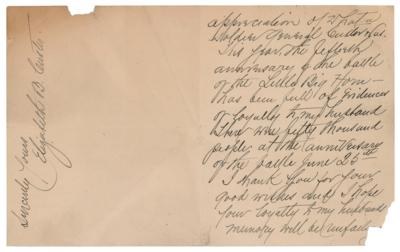 appreciation of what a
soldier General Custer was.
This year the fiftieth
anniversary of the battle
of the Little Big Horn
has been full of evidences
of loyalty to my husband
There were fifty thousand
people at the anniversary
of the battle June 25th
I thank you for your
good wishes and I hope
your loyalty to my husbands
memory will be
Sincerely yours
Elizabeth B. Custer